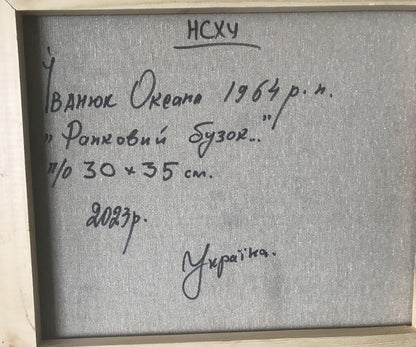 НСХУ
Іванюк Оксана 1964 р.н.
"Ранковий бузок..."
п/о 30 х 35 см.
2023р.
Україна.